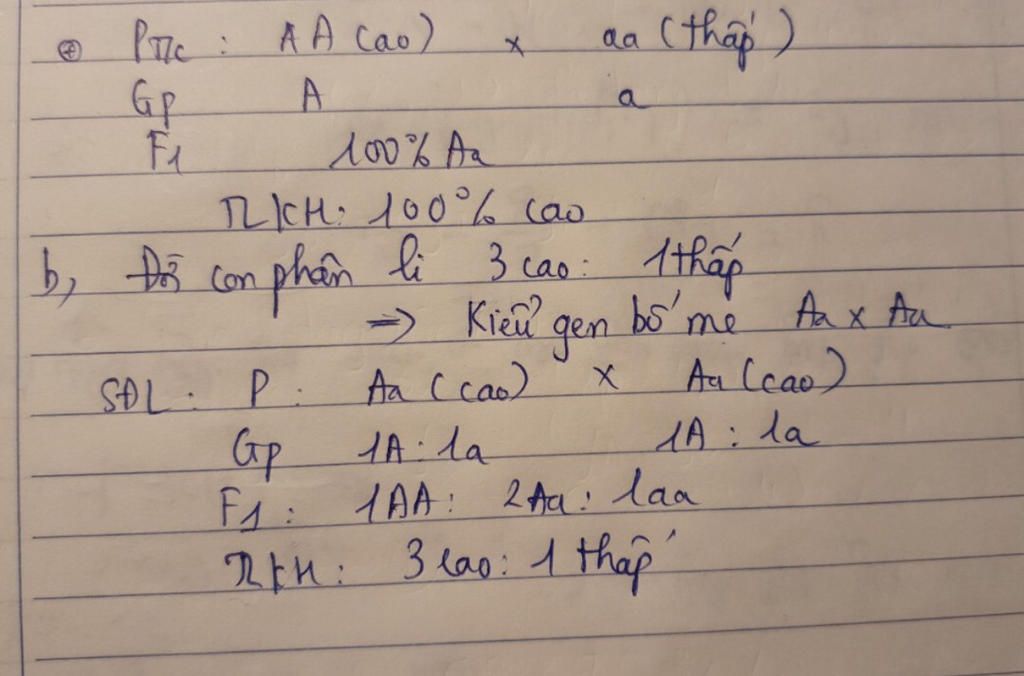 ⊕ PTLC : AA (cao) x aa (thấp)
Gp A a
F1 100% Aa
TLKH: 100% cao
b, con phân li 3 cao: 1 thấp
=> Kiểu gen bố mẹ Aa x Aa
SĐL: P: Aa (cao) x Aa (cao)
Gp 1A : 1a 1A : 1a
F1: 1AA: 2Aa: 1aa
TLKH: 3 cao: 1 thấp